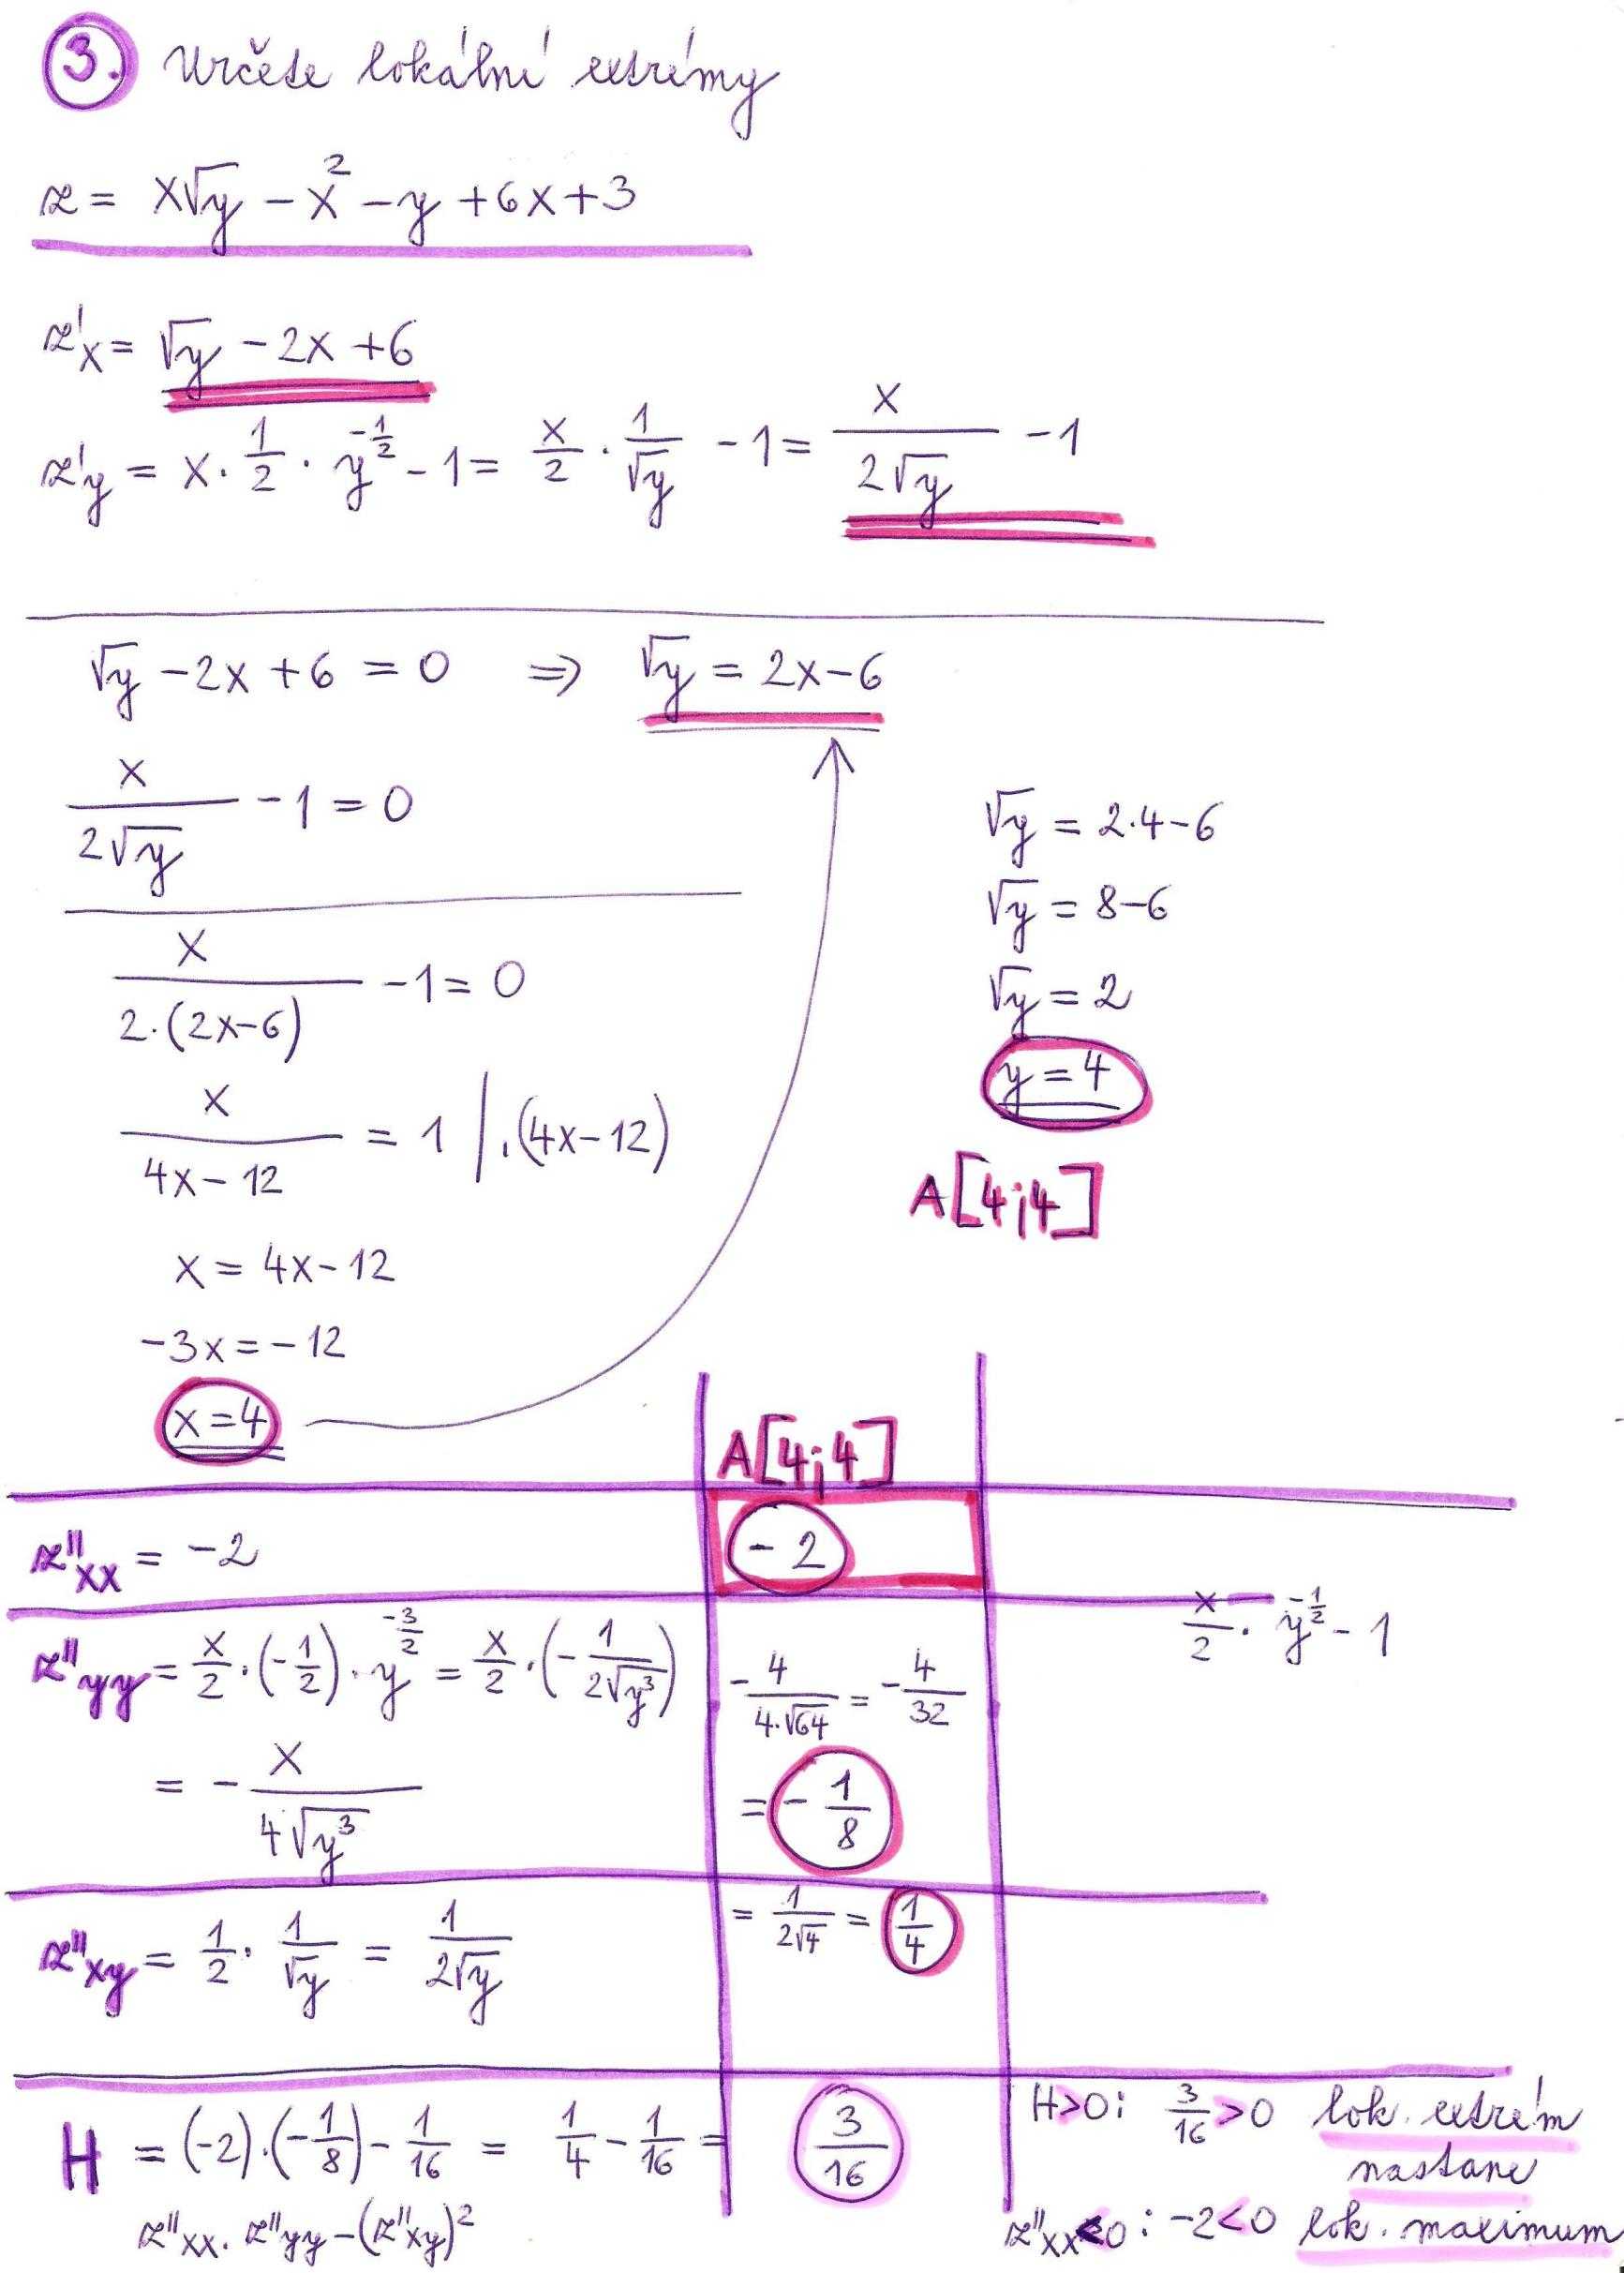 3. Určete lokální extrémy
z = x√y - x² - y + 6x + 3
z'x = √y - 2x + 6
z'y = x · 1/2 · y^(-1/2) - 1 = x/2 · 1/√y - 1 = x/(2√y) - 1
√y - 2x + 6 = 0 ⇒ √y = 2x - 6
x/(2√y) - 1 = 0
x/(2·(2x-6)) - 1 = 0
x/(4x-12) = 1 /·(4x-12)
x = 4x - 12
-3x = -12
x = 4
√y = 2·4 - 6
√y = 8 - 6
√y = 2
y = 4
A[4;4]
A[4;4]
z''xx = -2
-2
z''yy = x/2 · (-1/2) · y^(-3/2) = x/2 · (-1/(2√y³))
= - x/(4√y³)
- 4/(4·√64) = - 4/32
= - 1/8
x/2 · y^(-1/2) - 1
z''xy = 1/2 · 1/√y = 1/(2√y)
= 1/(2√4) = 1/4
H = (-2)·(-1/8) - 1/16 = 1/4 - 1/16 = 3/16
z''xx · z''yy - (z''xy)²
H>0: 3/16 > 0 lok. extrém
nastane
z''xx<0: -2<0 lok. maximum